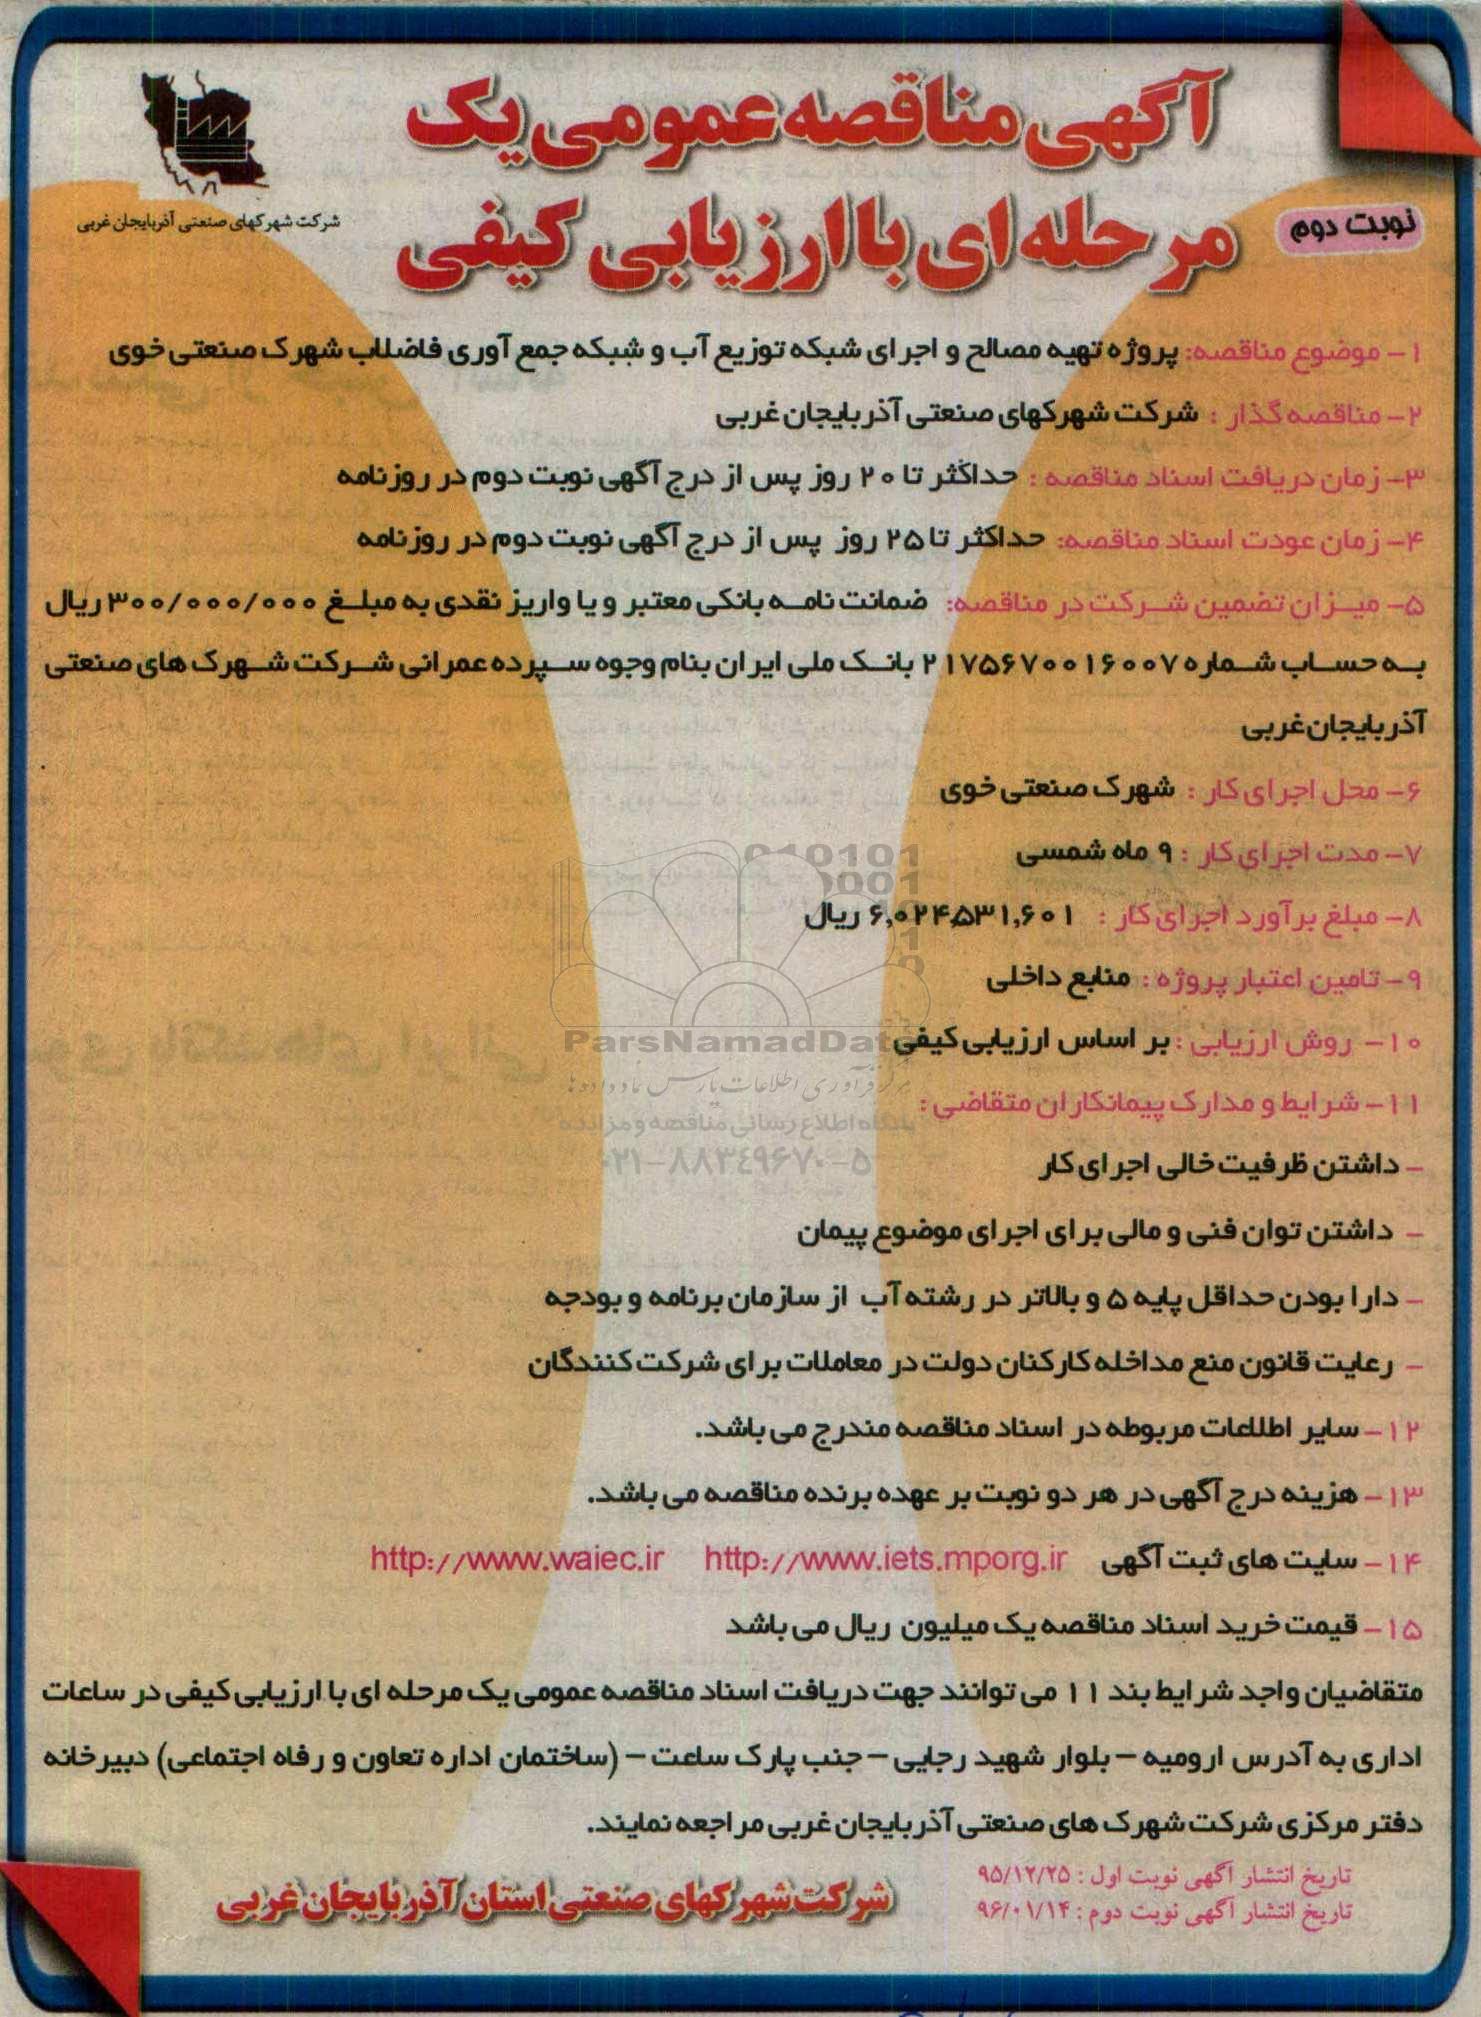 آگهی مناقصه عمومی یک
مرحله ای با ارزیابی کیفی
نوبت دوم
شرکت شهرکهای صنعتی آذربایجان غربی
۱- موضوع مناقصه: پروژه تهیه مصالح و اجرای شبکه توزیع آب و شبکه جمع آوری فاضلاب شهرک صنعتی خوی
۲- مناقصه گذار : شرکت شهرکهای صنعتی آذربایجان غربی
۳- زمان دریافت اسناد مناقصه : حداکثر تا ۲۰ روز پس از درج آگهی نوبت دوم در روزنامه
۴- زمان عودت اسناد مناقصه: حداکثر تا ۲۵ روز پس از درج آگهی نوبت دوم در روزنامه
۵- میزان تضمین شرکت در مناقصه: ضمانت نامه بانکی معتبر و یا واریز نقدی به مبلغ ۳۰۰/۰۰۰/۰۰۰ ریال
به حساب شماره ۲۱۷۵۶۷۰۰۱۶۰۰۷ بانک ملی ایران بنام وجوه سپرده عمرانی شرکت شهرک های صنعتی
آذربایجان غربی
۶- محل اجرای کار : شهرک صنعتی خوی
۷- مدت اجرای کار : ۹ ماه شمسی
۸- مبلغ برآورد اجرای کار : ۶,۰۲۴,۵۳۱,۶۰۱ ریال
۹- تامین اعتبار پروژه : منابع داخلی
۱۰- روش ارزیابی : بر اساس ارزیابی کیفی
۱۱- شرایط و مدارک پیمانکاران متقاضی :
- داشتن ظرفیت خالی اجرای کار
- داشتن توان فنی و مالی برای اجرای موضوع پیمان
- دارا بودن حداقل پایه ۵ و بالاتر در رشته آب از سازمان برنامه و بودجه
- رعایت قانون منع مداخله کارکنان دولت در معاملات برای شرکت کنندگان
۱۲- سایر اطلاعات مربوطه در اسناد مناقصه مندرج می باشد.
۱۳- هزینه درج آگهی در هر دو نوبت بر عهده برنده مناقصه می باشد.
۱۴- سایت های ثبت آگهی http://www.iets.mporg.ir http://www.waiec.ir
۱۵- قیمت خرید اسناد مناقصه یک میلیون ریال می باشد
متقاضیان واجد شرایط بند ۱۱ می توانند جهت دریافت اسناد مناقصه عمومی یک مرحله ای با ارزیابی کیفی در ساعات
اداری به آدرس ارومیه - بلوار شهید رجایی - جنب پارک ساعت - (ساختمان اداره تعاون و رفاه اجتماعی) دبیرخانه
دفتر مرکزی شرکت شهرک های صنعتی آذربایجان غربی مراجعه نمایند.
تاریخ انتشار آگهی نوبت اول : ۹۵/۱۲/۲۵
تاریخ انتشار آگهی نوبت دوم : ۹۶/۰۱/۱۴
شرکت شهرکهای صنعتی استان آذربایجان غربی
ParsNamadData
مرکز فرآوری اطلاعات پارس نماد داده ها
پایگاه اطلاع رسانی مناقصه و مزایده
۰۲۱-۸۸۳۴۹۶۷۰-۵